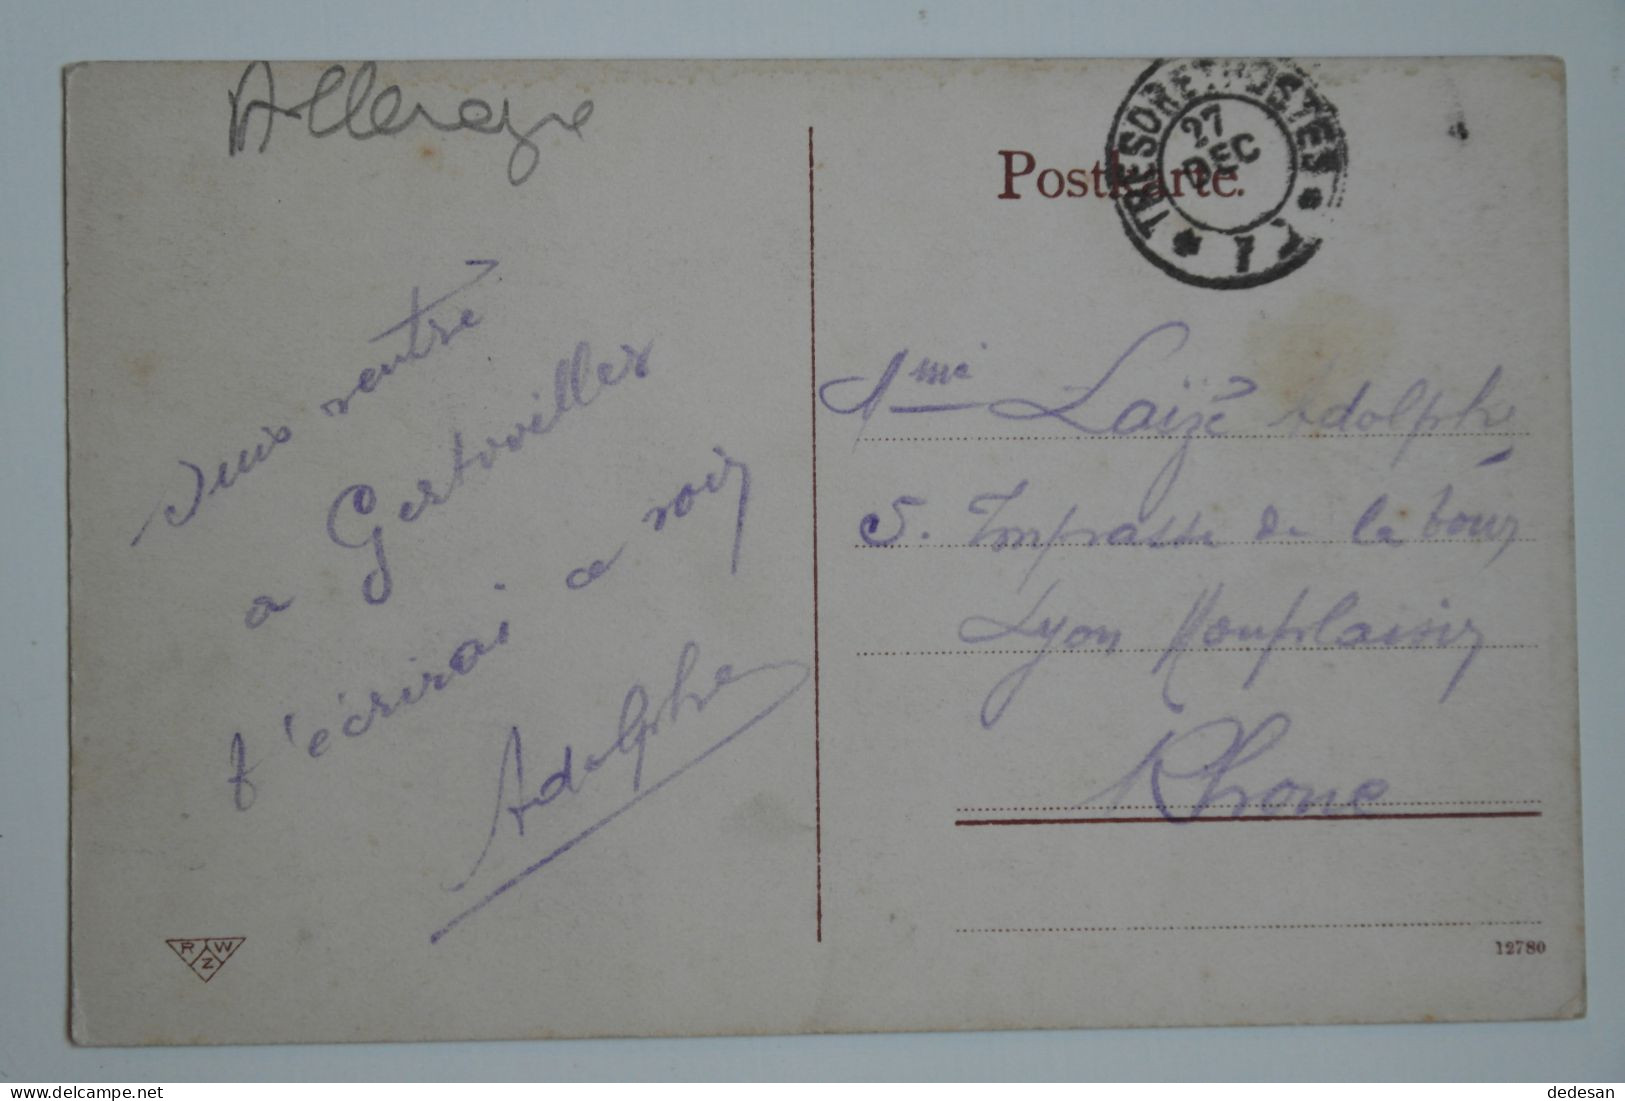 Allemagne
Postkarte.
TRESOR ET POSTES
27
DEC
* 7 *
suis rentré
a Gertwiller
t'écrirai ce soir
Adolphe
Mme Laïzé Adolph
5. Impasse de la Tour
Lyon Monplaisir
Rhone
R W
Z
12780
dedesan